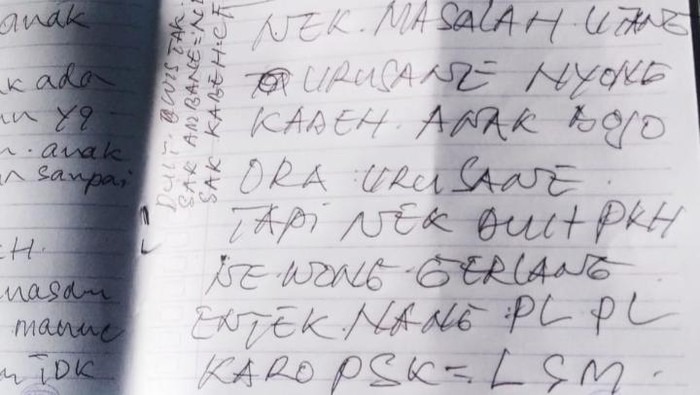 anak
k ada
n yg
n. anak
n sanpai
H.
masan
manuc
n IDK
DUIT. WIS TAK
SAK AMBANE = NI
SAK KABEH = CF
NEK. MASALAH UTANG
URUSANE NYONG
KABEH. ANAK BOJO
ORA URUSANE.
TAPI NEK DUIT PKH
NE WONG GERLANG
ENTEK. NANG PL PL
KARO PSK = LSM.